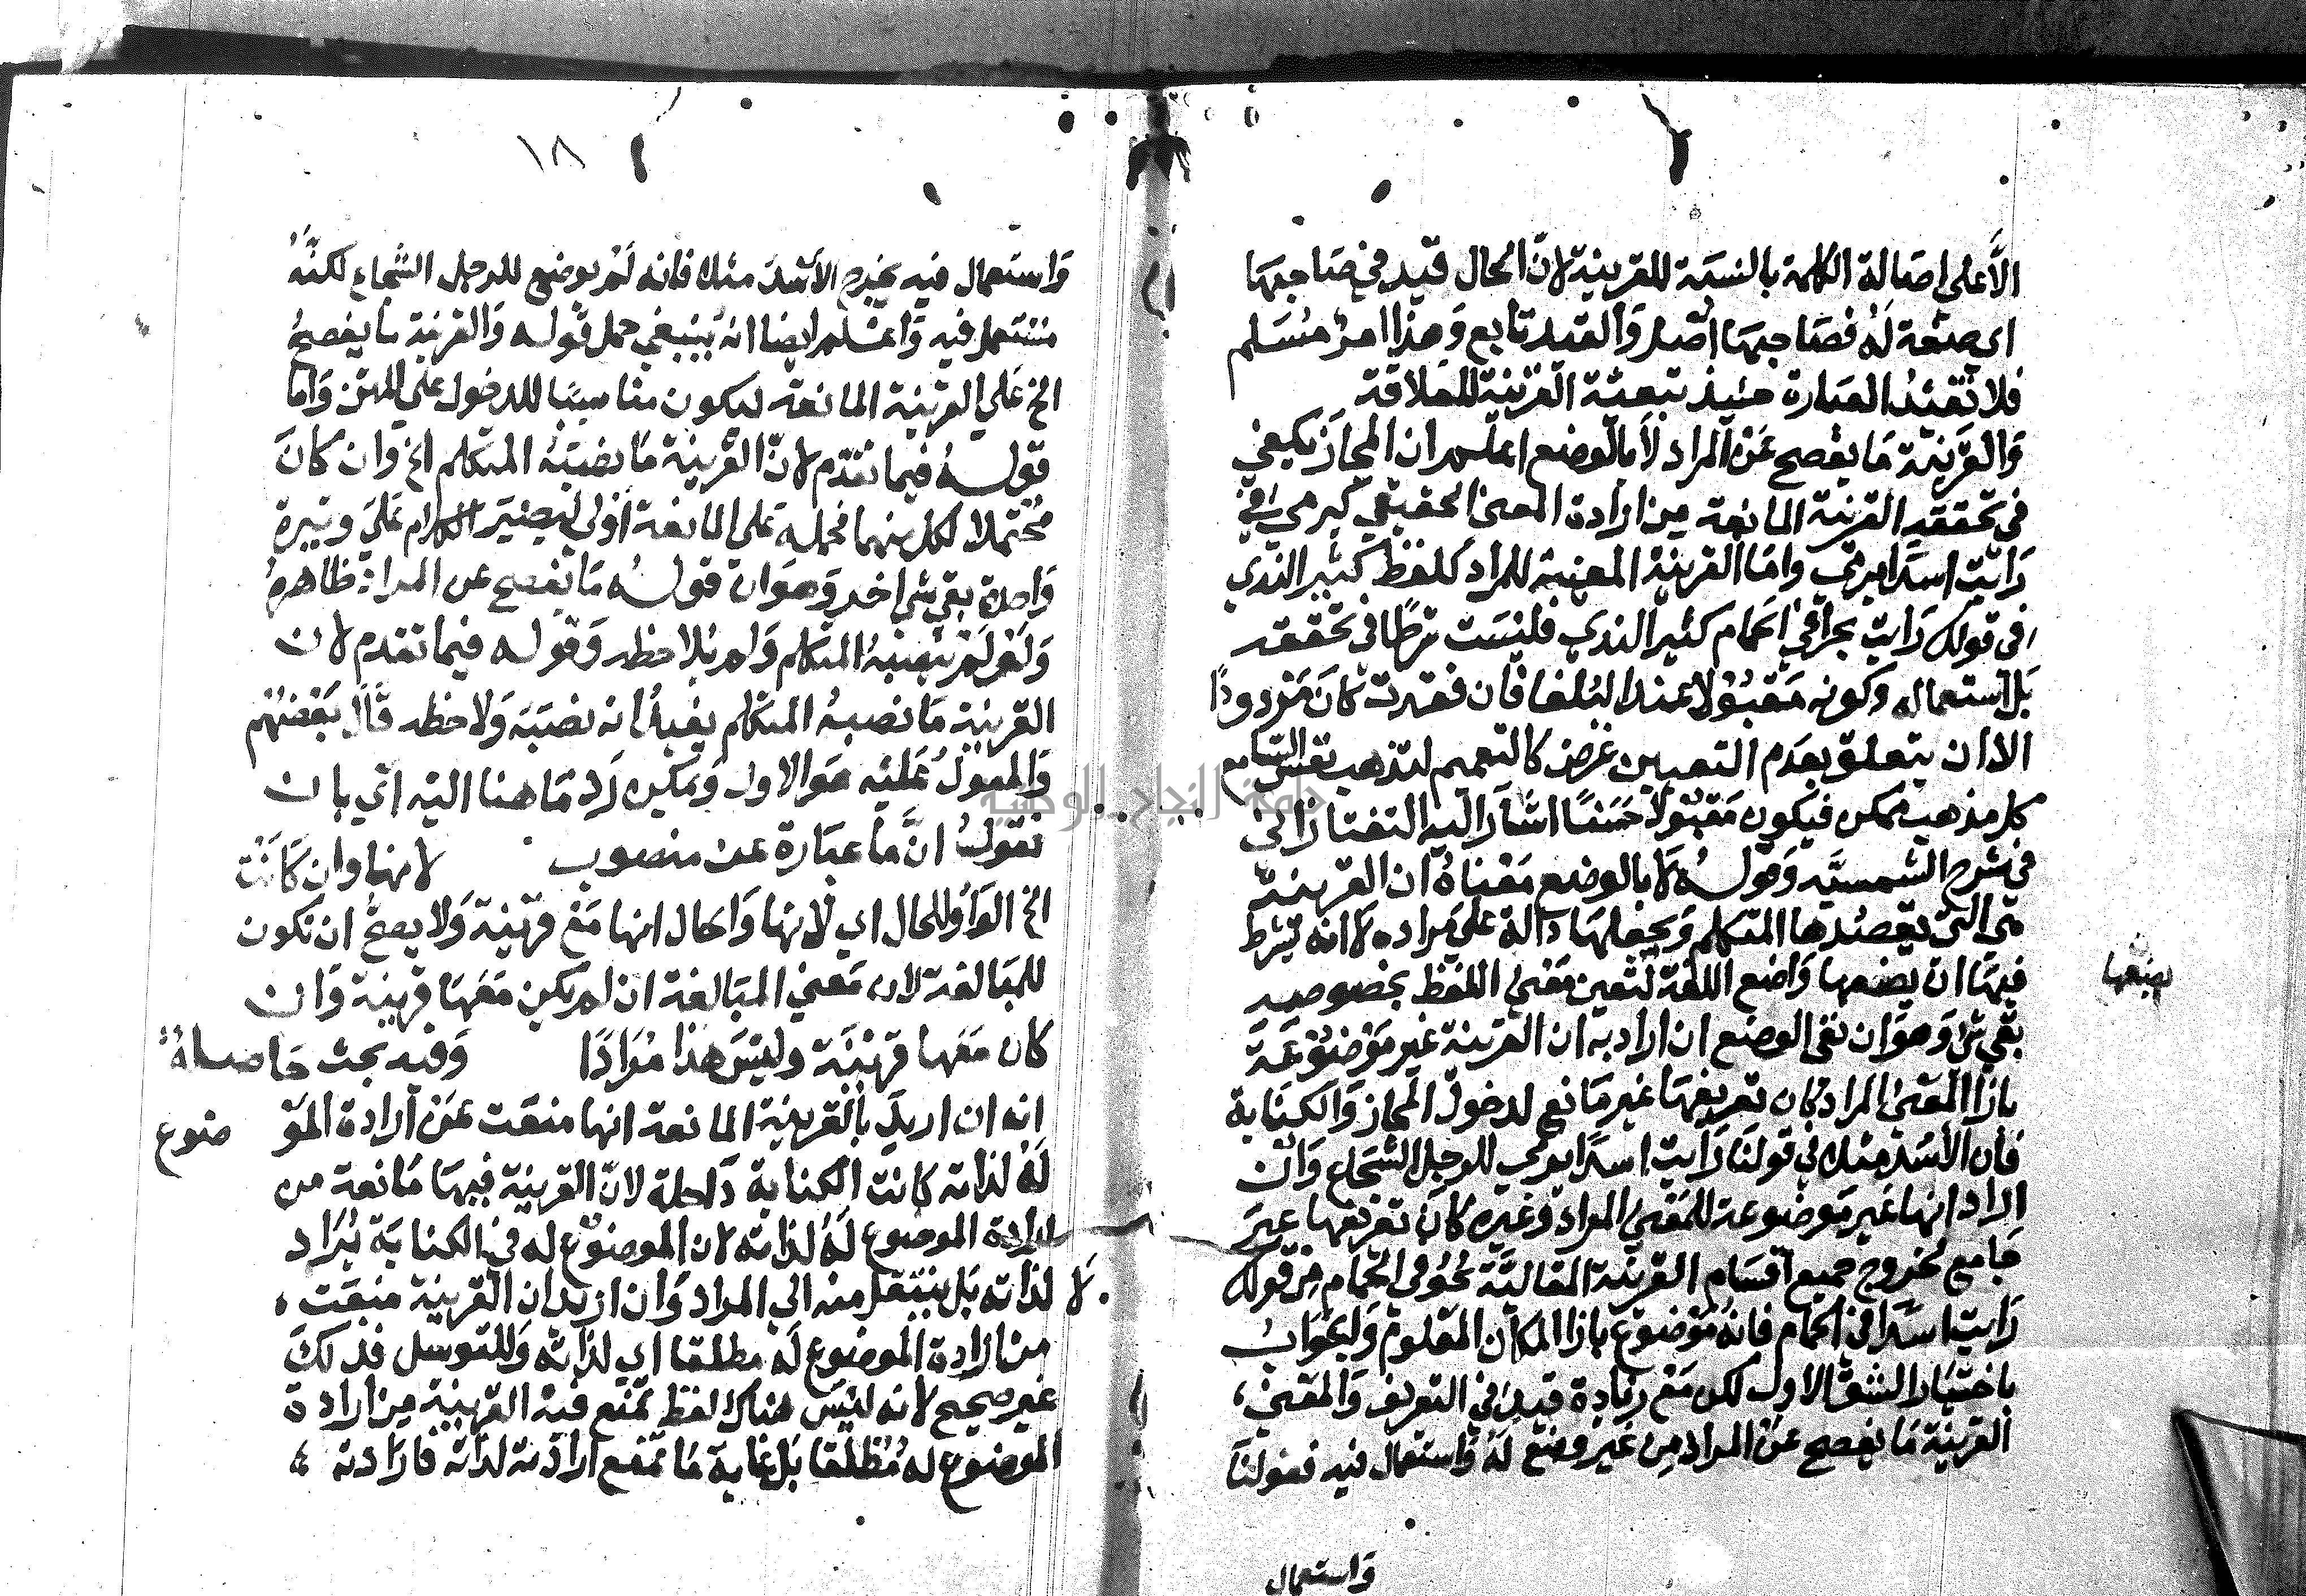 الا على اصالة الكلمة بالنسبة للقرينة لان الحال قيد في صاحبها
اي صفة له فصاحبها اصل والقيد تابع وهذا امر مسلم
فلا تفيد العبارة حينئذ تبعية القرينة للعلاقة
والقرينة ما يفصح عن المراد لا بالوضع اعلم ان المجاز يكفي
في تحققه القرينة المانعة من ارادة المعنى الحقيقي كيرمي في
رايت اسدا يرمي واما القرينة المعينة للمراد كلفظ كثير الندي
في قولك رايت بحرا في الحمام كثير الندي فليست شرطا في تحققه
بل استعماله وكونه مقبولا عند البلغا فان فقدت كان مردودا
الا ان يتعلق بعدم التعيين غرض كالتعميم لتذهب نفس السامع
كل مذهب ممكن فيكون مقبولا حسنا اشار اليه التفتازاني
في شرح الشمسية وقوله لا بالوضع معناه ان القرينة
هي التي يقصدها المتكلم ويجعلها دالة على مراده لا انه يشترط
فيها ان يضعها واضع اللغة لتعين معنى اللفظ بخصوصه
يضعها
بقي شي وهو ان نفي الوضع ان اراد به ان القرينة غير موضوعة
بازا المعنى المراد كان تعريفها غير مانع لدخول المجاز والكناية
فان الاسد مثلا في قولنا رايت اسدا يرمي للرجل الشجاع وان
اراد انها غير موضوعة للمعنى المراد وغيره كان تعريفها غير
جامع لخروج جميع اقسام القرينة المقالية نحو في الحمام من قولك
رايت اسدا في الحمام فانه موضوع بازا المكان المعلوم والجواب
باختيار الشق الاول لكن مع زيادة قيد في التعريف والمعنى
القرينة ما يفصح عن المراد من غير وضع له واستعمال فيه فقولنا
واستعمال
١٨
واستعمال فيه يخرج الاسد مثلا فانه لم يوضع للرجل الشجاع لكنه
مستعمل فيه واعلم ايضا انه ينبغي حمل قوله والقرينة ما يفصح
الخ على القرينة المانعة ليكون مناسبا للدخول على المتن واما
قوله فيما تقدم لان القرينة ما نصبه المتكلم الخ وان كان
محتملا لكل منهما فحمله على المانعة اولى ليصير الكلام على وتيرة
واحدة بقي شي اخر وهو ان قوله ما يفصح عن المراد ظاهره
ولو لم ينصبه المتكلم ولم يلاحظه وقوله فيما تقدم لان
القرينة ما نصبه المتكلم يفيد انه نصبه ولاحظه قال بعضهم
والمعول عليه هو الاول ويمكن رد ما هنا اليه اتي بان
نقول ان ما عبارة عن منصوب لانها وان كانت
الخ الواو للحال اي لانها والحال انها مع قرينة ولا يصح ان تكون
للمبالغة لان معنى المبالغة ان لم يكن معها قرينة وان
كان معها قرينة وليس هذا مرادا وفيه بحث حاصله
انه ان اريد بالقرينة المانعة انها منعت عن ارادة المو ضوع
له لذاته كانت الكناية داخلة لان القرينة فيها مانعة من
ارادة الموضوع له لذاته لان الموضوع له في الكناية يراد
لا لذاته بل ينتقل منه الى المراد وان اريد ان القرينة منعت
من ارادة الموضوع له مطلقا اي لذاته وللتوسل فذلك
غير صحيح لانه ليس هناك لفظ تمنع فيه القرينة من ارادة
الموضوع له مطلقا بل غاية ما تمنع ارادته لذاته فارادته
جامعة النجاح الوطنية